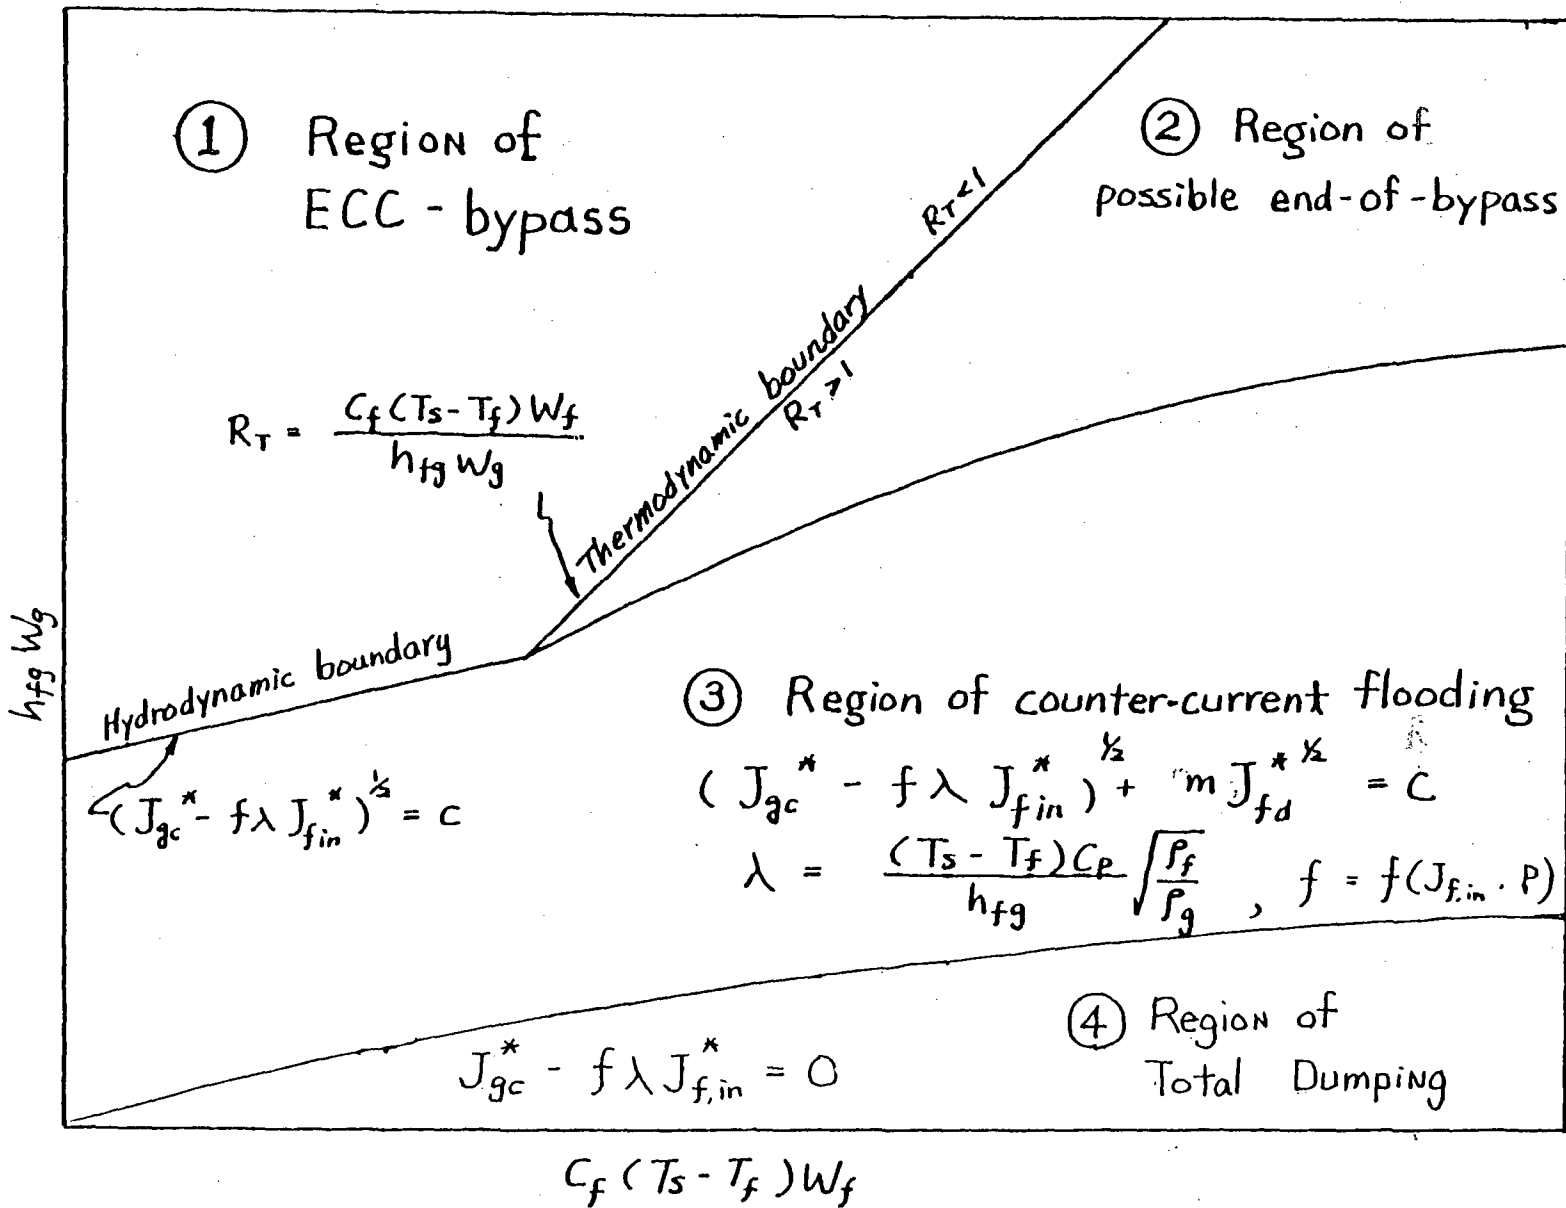 ① Region of
ECC - bypass
② Region of
possible end-of-bypass
R_T < 1
Thermodynamic boundary
R_T > 1
R_T = C_f (T_s - T_f) W_f / h_fg W_g
h_fg W_g
Hydrodynamic boundary
(J_gc^* - f λ J_f in^*)^½ = C
③ Region of counter-current flooding
(J_gc^* - f λ J_f in^*)^½ + m J_fd^*^½ = C
λ = (T_s - T_f) C_P / h_fg √(ρ_f / ρ_g) , f = f(J_f,in . P)
④ Region of
Total Dumping
J_gc^* - f λ J_f,in^* = 0
C_f (T_s - T_f) W_f